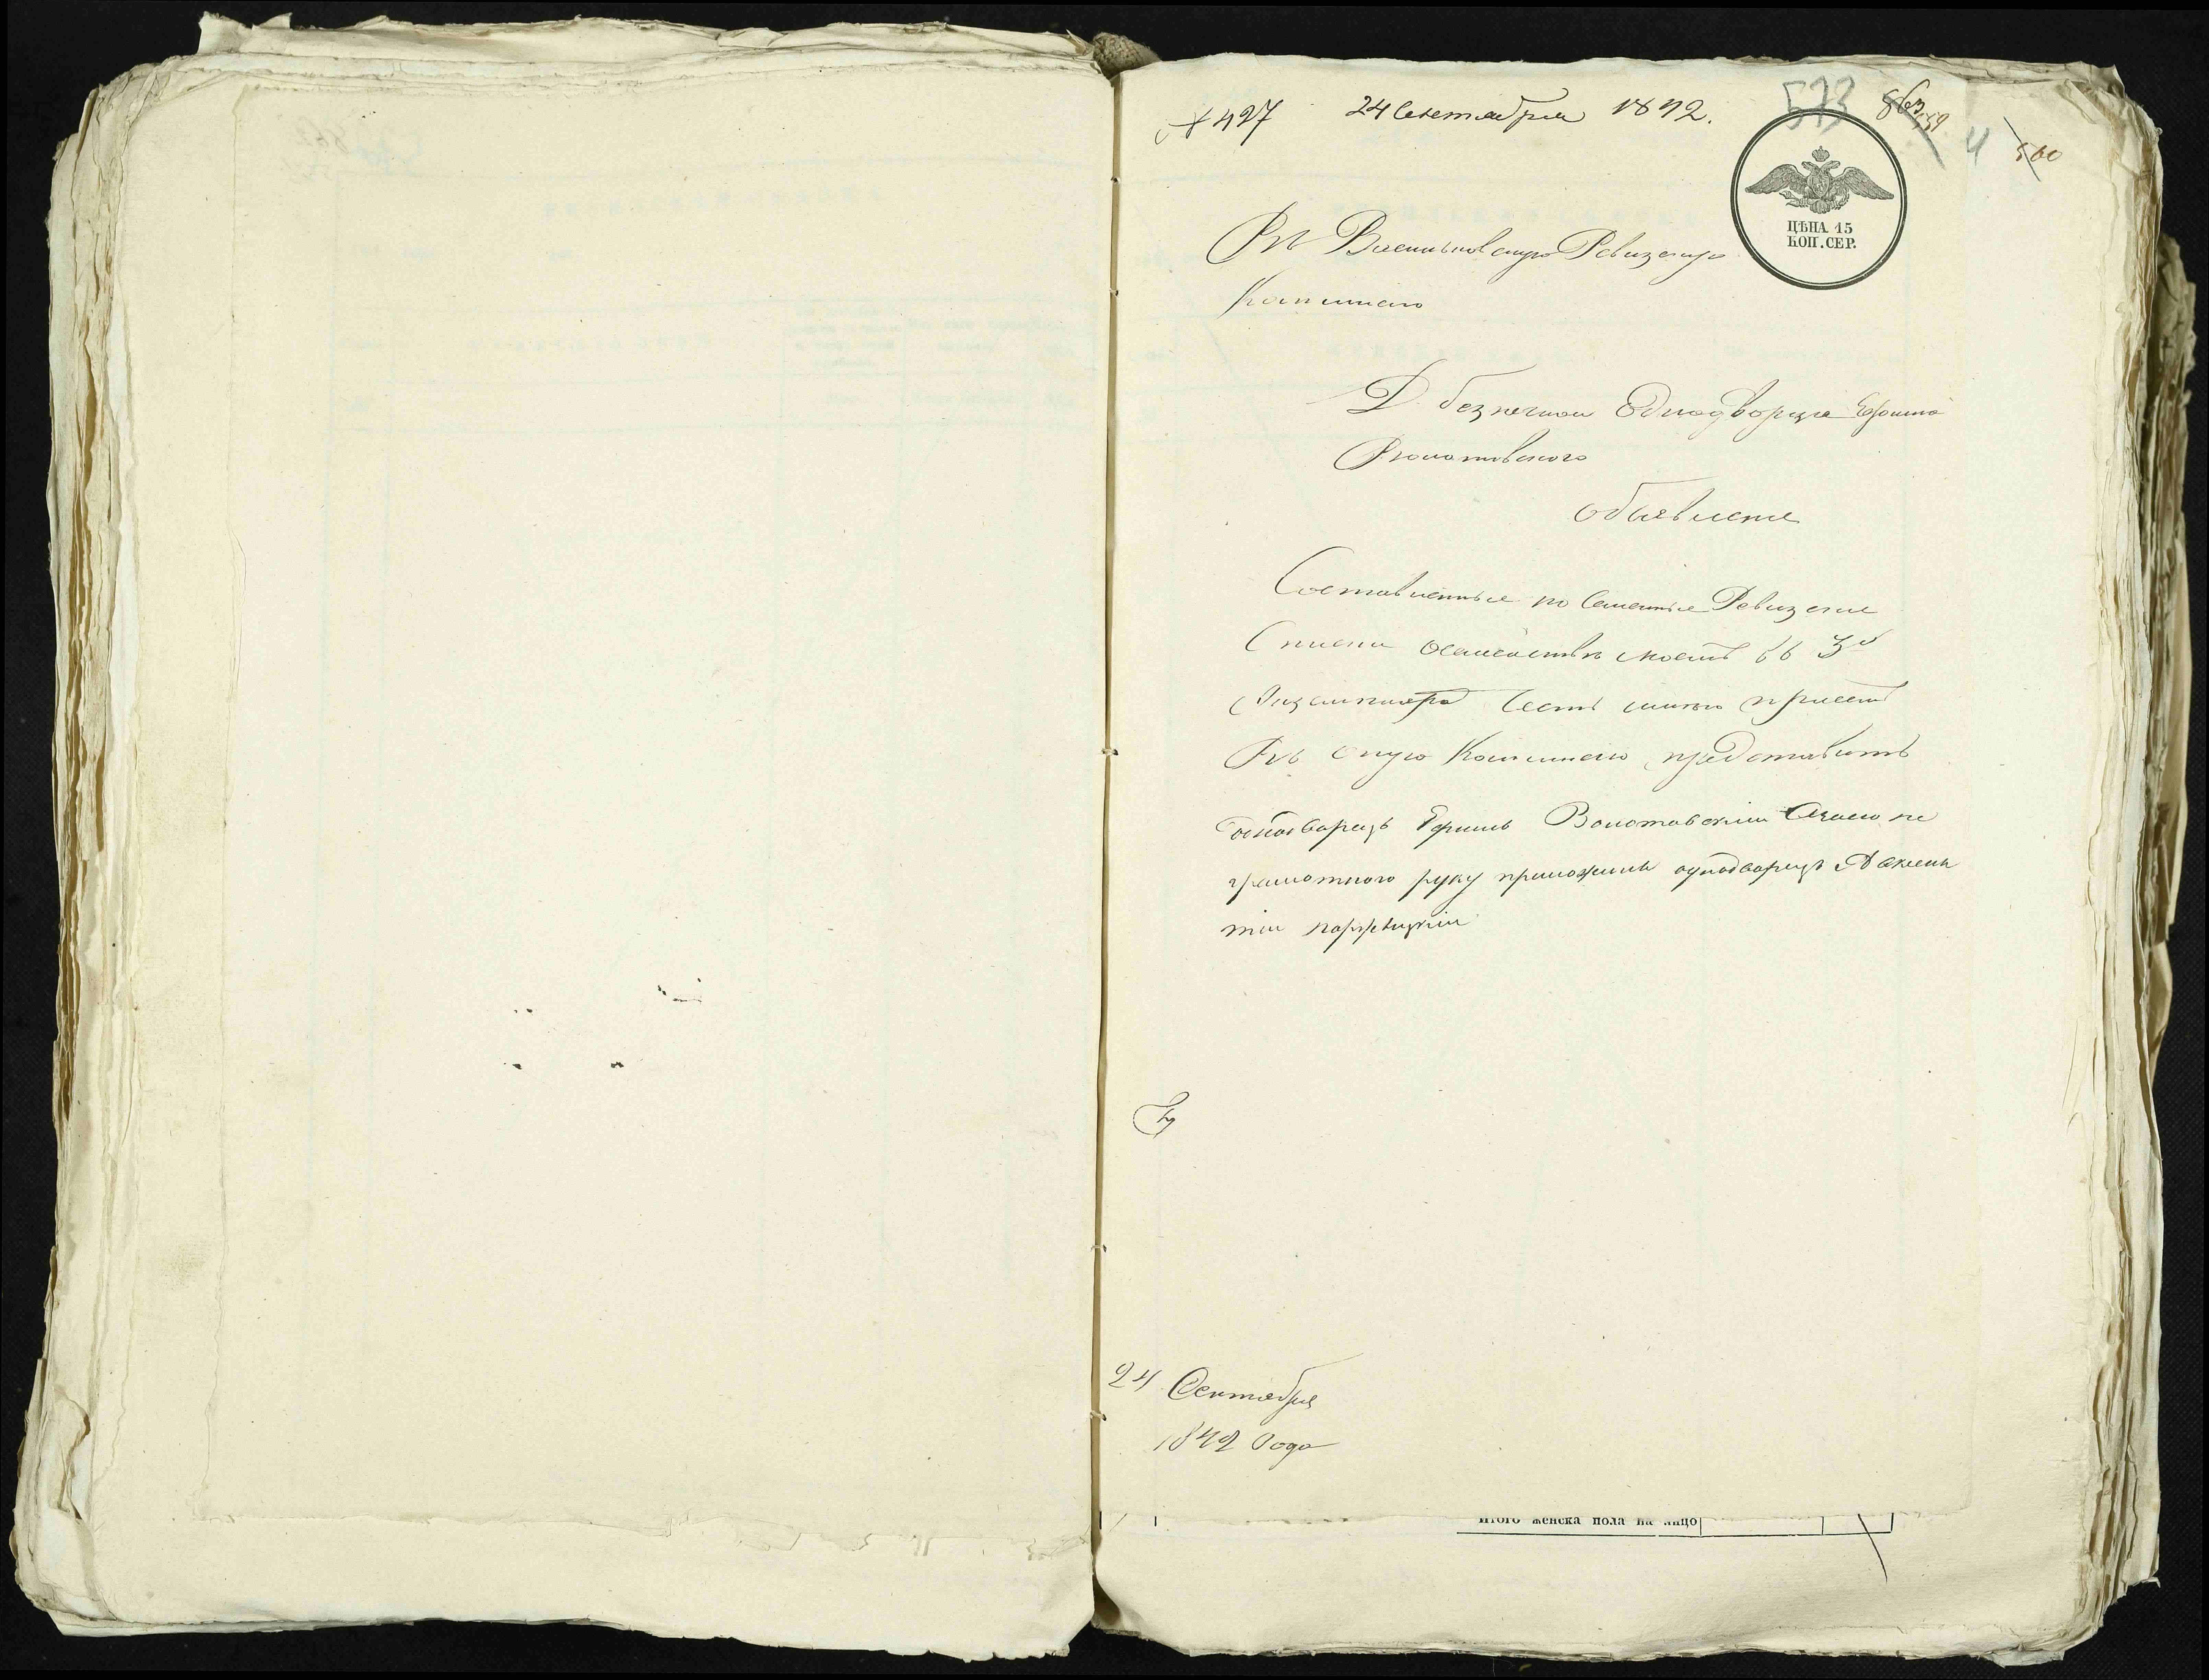 № 427 24 Сентября 1842.
573
4
560
ЦѢНА 15
КОП. СЕР.
Въ Васильковскую Ревизскую
Комисию
Однодворца Ефима
Волотовского
объявление
Составленные по Ревизские
Списки о семействе моем въ 3х
Экземплярах честь имею при сем
Въ оную Комисию представить
однодворецъ Ефимъ Волотовскии а за его не
грамотного руку приложилъ однодворецъ Авксен
тии
24 Сентября
1842 Года
Итого женска пола на лицо